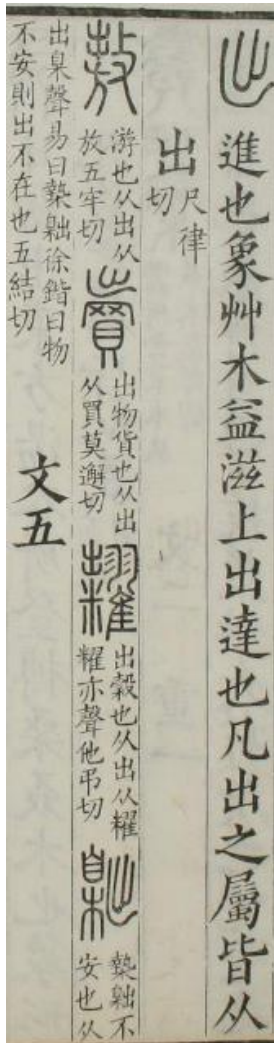 出進也象艸木益滋上出達也凡出之屬皆从
出
尺律
切
敖
游也从出从
放五牢切
賣
出物貨也从出
从買莫邂切
糶
出穀也从出从䊮
䊮亦聲他弔切
𦤞
槷𦤞不
安也从
出臬聲易曰槷𦤞徐鍇曰物
不安則出不在也五結切
文五